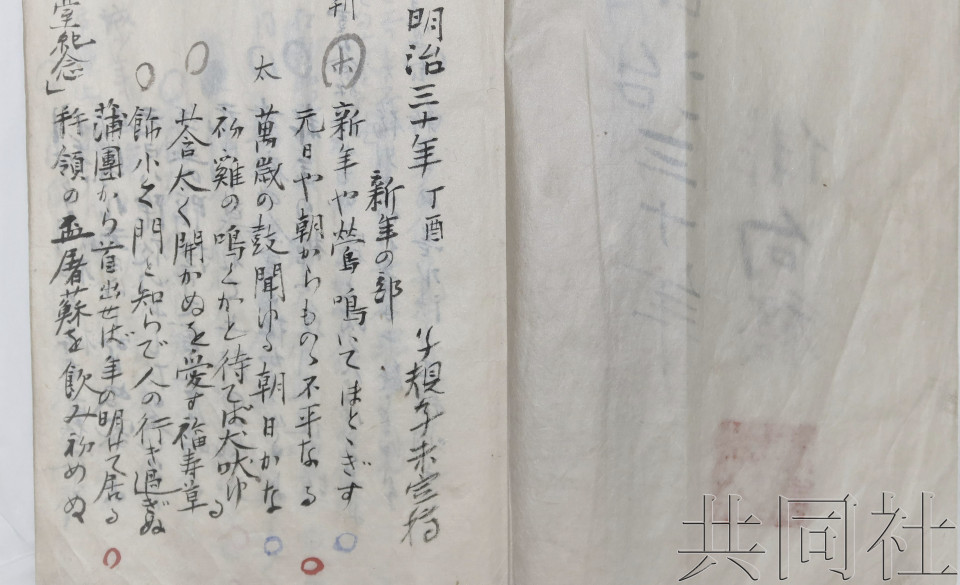 明治三十年 丁酉 子規子未定稿
新年の部
新年や鶯鳴いてほとゝぎす
元日や朝からものゝ不平なる
太 萬歳の鼓聞ゆる朝日かな
初雞の鳴くかと待てば犬吠ゆる
莟太く開かぬを愛す福寿草
飾小く門と知らで人の行き過ぎぬ
蒲團から首出せば年の明けて居る
堂紀念」拝領の盃屠蘇を飲み初めぬ
共同社